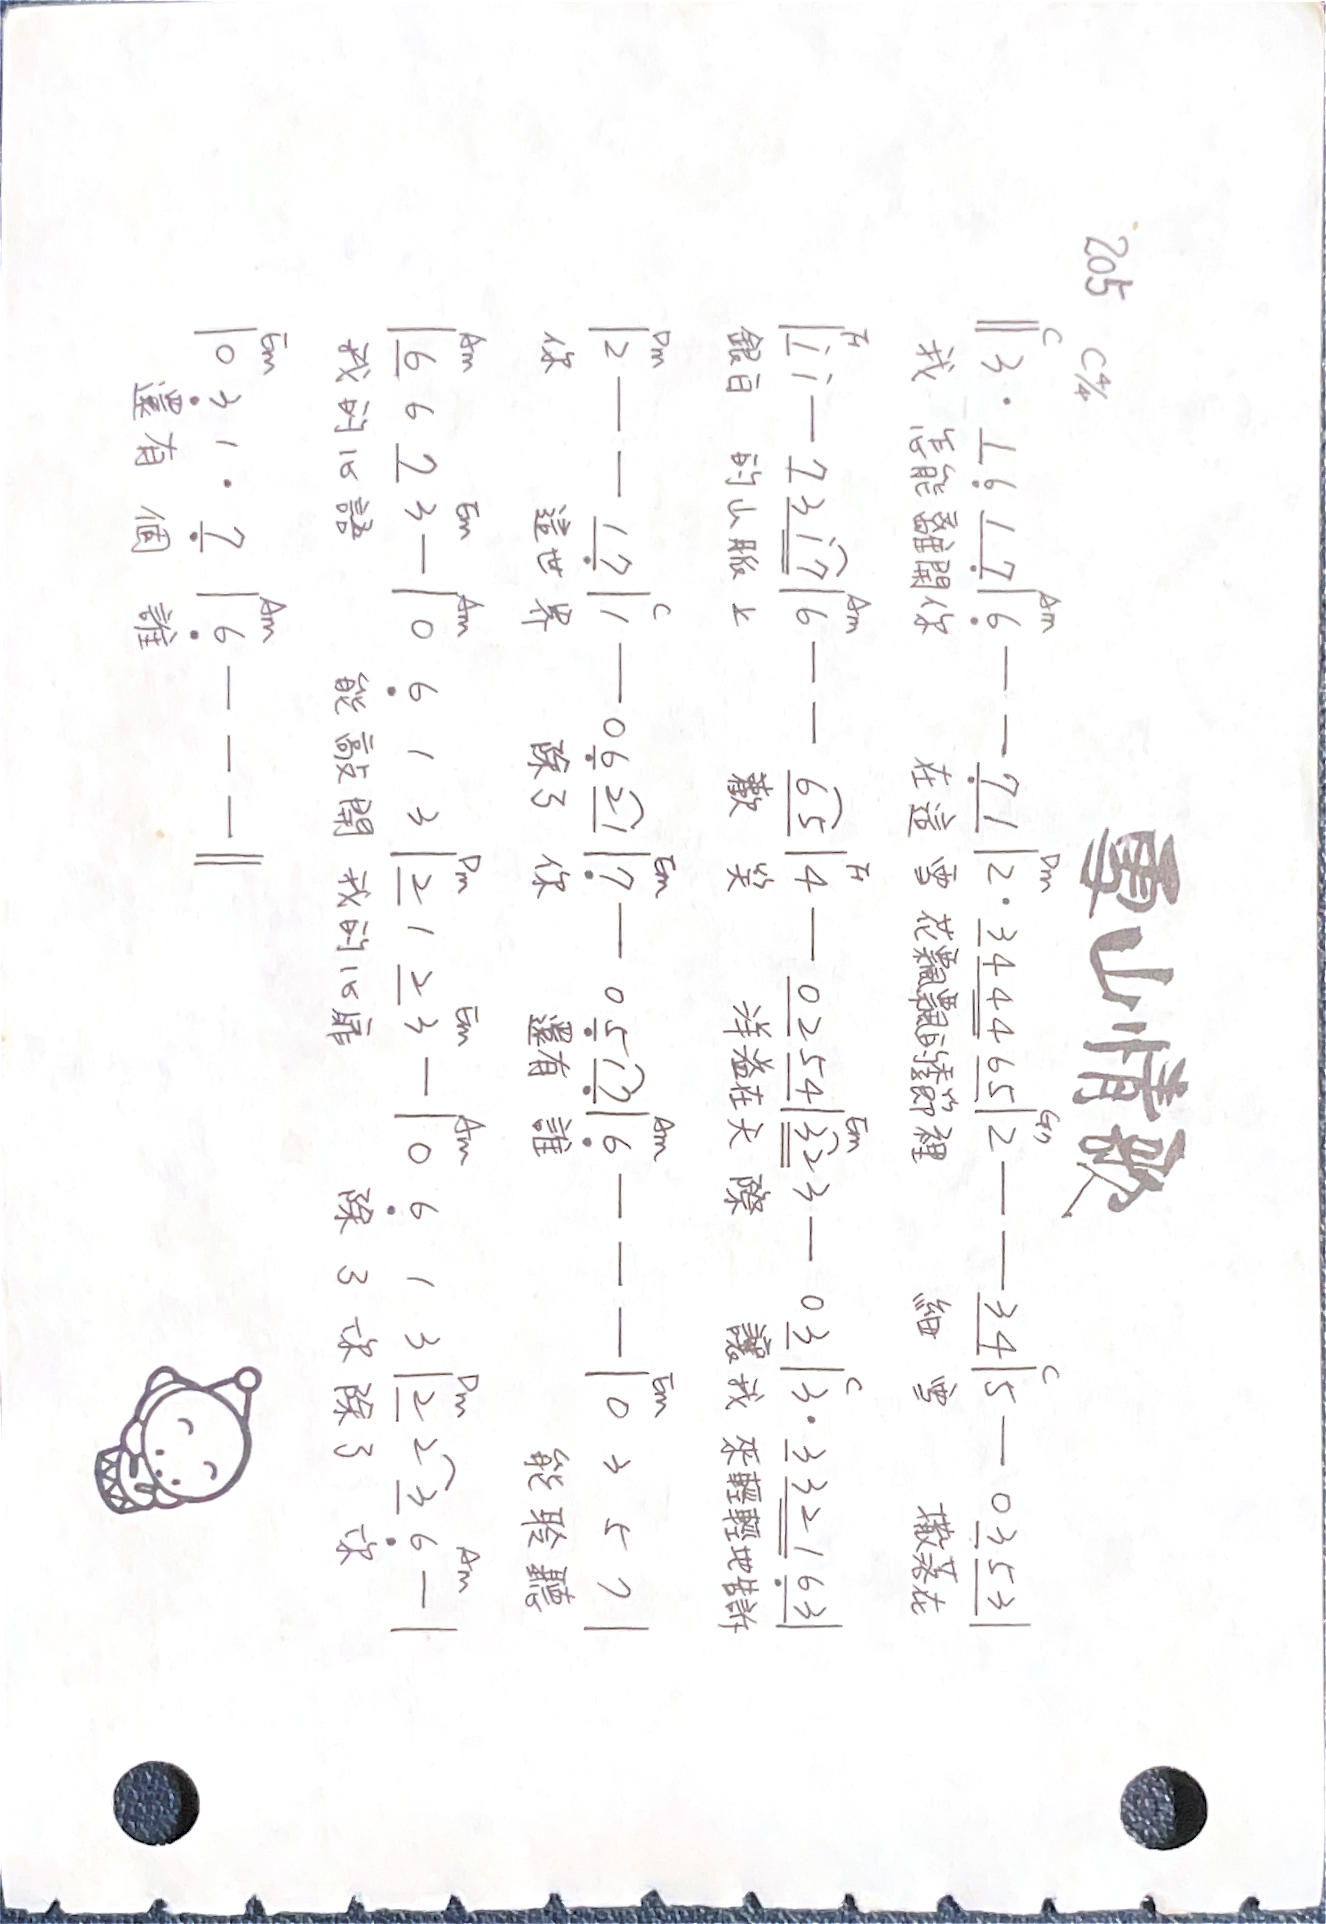 雪山情歌
205 C4/4
C Am Dm G7 C
‖3· 1 6 1 7|6 — — 7 1|2· 3 4 4 4 6 5|2 — — 3 4|5 — 0 3 5 3|
我 怎能離開你 在這雪花飄飄的季節裡 細雪 撒落在
F Am F Em C
|i i — 7 3 i 7|6 — — 6 5|4 — 0 2 5 4|3 2 3 — 0 3|3· 3 3 2 1 6 3|
銀白 的山脈上 歡笑 洋溢在天際 讓我來輕輕地告訴
Dm C Em Am Em
|2 — — 1 7|1 — 0 6 2 1|7 — 0 5 1 7|6 — — —|0 3 5 7|
你 這世界 除了你 還有誰 能聆聽
Am Em Am Dm Em Am Dm Am
|6 6 7 3 —|0 6 1 3|2 1 2 3 —|0 6 1 3|2 2 3 6 —|
我的心語 能敲開我的心扉 除了你除了你
Em Am
|0 3 1· 7|6 — — —‖
還有個誰